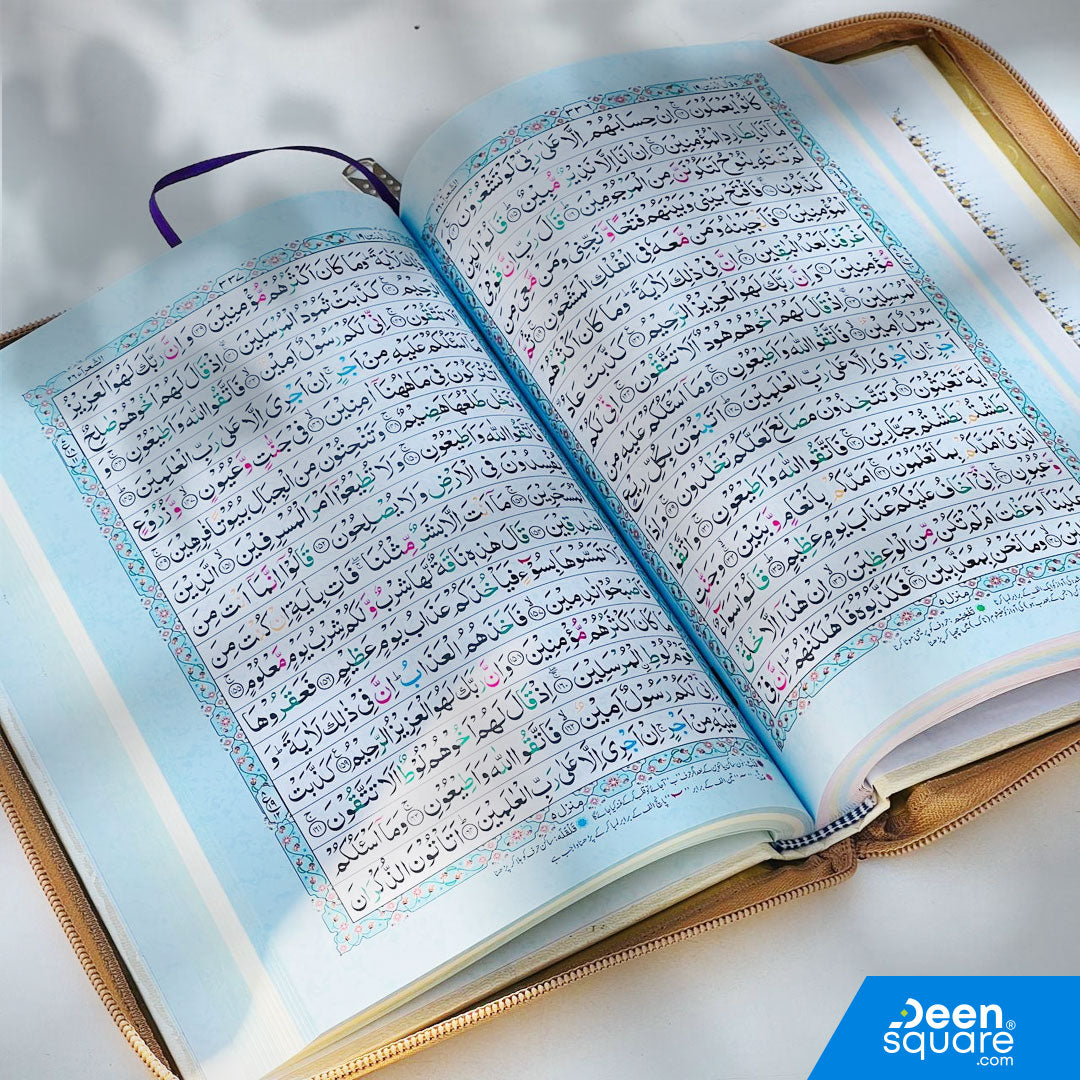 ٣٣٦
كَانُوْا يَعْمَلُوْنَ ۝ اِنْ حِسَابُهُمْ اِلَّا عَلٰى رَبِّىْ لَوْ تَشْعُرُوْنَ ۝ وَ
مَآ اَنَا بِطَارِدِ الْمُؤْمِنِيْنَ ۝ اِنْ اَنَا اِلَّا نَذِيْرٌ مُّبِيْنٌ ۝ قَالُوْا لَئِنْ
لَّمْ تَنْتَهِ يٰنُوْحُ لَتَكُوْنَنَّ مِنَ الْمَرْجُوْمِيْنَ ۝ قَالَ رَبِّ اِنَّ قَوْمِىْ
كَذَّبُوْنِ ۝ فَافْتَحْ بَيْنِىْ وَبَيْنَهُمْ فَتْحًا وَّنَجِّنِىْ وَمَنْ مَّعِىَ مِنَ
الْمُؤْمِنِيْنَ ۝ فَاَنْجَيْنٰهُ وَمَنْ مَّعَهٗ فِى الْفُلْكِ الْمَشْحُوْنِ ۝ ثُمَّ
اَغْرَقْنَا بَعْدُ الْبٰقِيْنَ ۝ اِنَّ فِىْ ذٰلِكَ لَاٰيَةً وَمَا كَانَ اَكْثَرُهُمْ
مُّؤْمِنِيْنَ ۝ وَاِنَّ رَبَّكَ لَهُوَ الْعَزِيْزُ الرَّحِيْمُ ۝ كَذَّبَتْ عَادُ
الْمُرْسَلِيْنَ ۝ اِذْ قَالَ لَهُمْ اَخُوْهُمْ هُوْدٌ اَلَا تَتَّقُوْنَ ۝ اِنِّىْ لَكُمْ
رَسُوْلٌ اَمِيْنٌ ۝ فَاتَّقُوا اللّٰهَ وَاَطِيْعُوْنِ ۝ وَمَآ اَسْئَلُكُمْ عَلَيْهِ مِنْ
اَجْرٍ اِنْ اَجْرِىَ اِلَّا عَلٰى رَبِّ الْعٰلَمِيْنَ ۝ اَتَبْنُوْنَ بِكُلِّ رِيْعٍ
اٰيَةً تَعْبَثُوْنَ ۝ وَتَتَّخِذُوْنَ مَصَانِعَ لَعَلَّكُمْ تَخْلُدُوْنَ ۝ وَاِذَا
بَطَشْتُمْ بَطَشْتُمْ جَبَّارِيْنَ ۝ فَاتَّقُوا اللّٰهَ وَاَطِيْعُوْنِ ۝ وَاتَّقُوا
الَّذِىْٓ اَمَدَّكُمْ بِمَا تَعْلَمُوْنَ ۝ اَمَدَّكُمْ بِاَنْعَامٍ وَّبَنِيْنَ ۝ وَجَنّٰتٍ
وَّعُيُوْنٍ ۝ اِنِّىْٓ اَخَافُ عَلَيْكُمْ عَذَابَ يَوْمٍ عَظِيْمٍ ۝ قَالُوْا سَوَآءٌ
عَلَيْنَآ اَوَعَظْتَ اَمْ لَمْ تَكُنْ مِّنَ الْوٰعِظِيْنَ ۝ اِنْ هٰذَآ اِلَّا خُلُقُ
الْاَوَّلِيْنَ ۝ وَمَا نَحْنُ بِمُعَذَّبِيْنَ ۝ فَكَذَّبُوْهُ فَاَهْلَكْنٰهُمْ اِنَّ فِىْ
منزل ٥
الشعراء
ذٰلِكَ لَاٰيَةً وَمَا كَانَ اَكْثَرُهُمْ مُّؤْمِنِيْنَ ۝ وَاِنَّ رَبَّكَ لَهُوَ الْعَزِيْزُ
الرَّحِيْمُ ۝ كَذَّبَتْ ثَمُوْدُ الْمُرْسَلِيْنَ ۝ اِذْ قَالَ لَهُمْ اَخُوْهُمْ صٰلِحٌ
اَلَا تَتَّقُوْنَ ۝ اِنِّىْ لَكُمْ رَسُوْلٌ اَمِيْنٌ ۝ فَاتَّقُوا اللّٰهَ وَاَطِيْعُوْنِ ۝ وَ
مَآ اَسْئَلُكُمْ عَلَيْهِ مِنْ اَجْرٍ اِنْ اَجْرِىَ اِلَّا عَلٰى رَبِّ الْعٰلَمِيْنَ ۝
اَتُتْرَكُوْنَ فِىْ مَا هٰهُنَآ اٰمِنِيْنَ ۝ فِىْ جَنّٰتٍ وَّعُيُوْنٍ ۝ وَّزُرُوْعٍ
وَّنَخْلٍ طَلْعُهَا هَضِيْمٌ ۝ وَتَنْحِتُوْنَ مِنَ الْجِبَالِ بُيُوْتًا فٰرِهِيْنَ ۝
فَاتَّقُوا اللّٰهَ وَاَطِيْعُوْنِ ۝ وَلَا تُطِيْعُوْٓا اَمْرَ الْمُسْرِفِيْنَ ۝ الَّذِيْنَ
يُفْسِدُوْنَ فِى الْاَرْضِ وَلَا يُصْلِحُوْنَ ۝ قَالُوْٓا اِنَّمَآ اَنْتَ مِنَ
الْمُسَحَّرِيْنَ ۝ مَآ اَنْتَ اِلَّا بَشَرٌ مِّثْلُنَا فَاْتِ بِاٰيَةٍ اِنْ كُنْتَ مِنَ
الصّٰدِقِيْنَ ۝ قَالَ هٰذِهٖ نَاقَةٌ لَّهَا شِرْبٌ وَّلَكُمْ شِرْبُ يَوْمٍ مَّعْلُوْمٍ ۝
وَلَا تَمَسُّوْهَا بِسُوْٓءٍ فَيَاْخُذَكُمْ عَذَابُ يَوْمٍ عَظِيْمٍ ۝ فَعَقَرُوْهَا
فَاَصْبَحُوْا نٰدِمِيْنَ ۝ فَاَخَذَهُمُ الْعَذَابُ اِنَّ فِىْ ذٰلِكَ لَاٰيَةً وَ
مَا كَانَ اَكْثَرُهُمْ مُّؤْمِنِيْنَ ۝ وَاِنَّ رَبَّكَ لَهُوَ الْعَزِيْزُ الرَّحِيْمُ ۝ كَذَّبَتْ
قَوْمُ لُوْطِ الْمُرْسَلِيْنَ ۝ اِذْ قَالَ لَهُمْ اَخُوْهُمْ لُوْطٌ اَلَا تَتَّقُوْنَ ۝
اِنِّىْ لَكُمْ رَسُوْلٌ اَمِيْنٌ ۝ فَاتَّقُوا اللّٰهَ وَاَطِيْعُوْنِ ۝ وَمَآ اَسْئَلُكُمْ
عَلَيْهِ مِنْ اَجْرٍ اِنْ اَجْرِىَ اِلَّا عَلٰى رَبِّ الْعٰلَمِيْنَ ۝ اَتَاْتُوْنَ الذُّكْرَانَ
منزل ٥
Deen®
square
.com